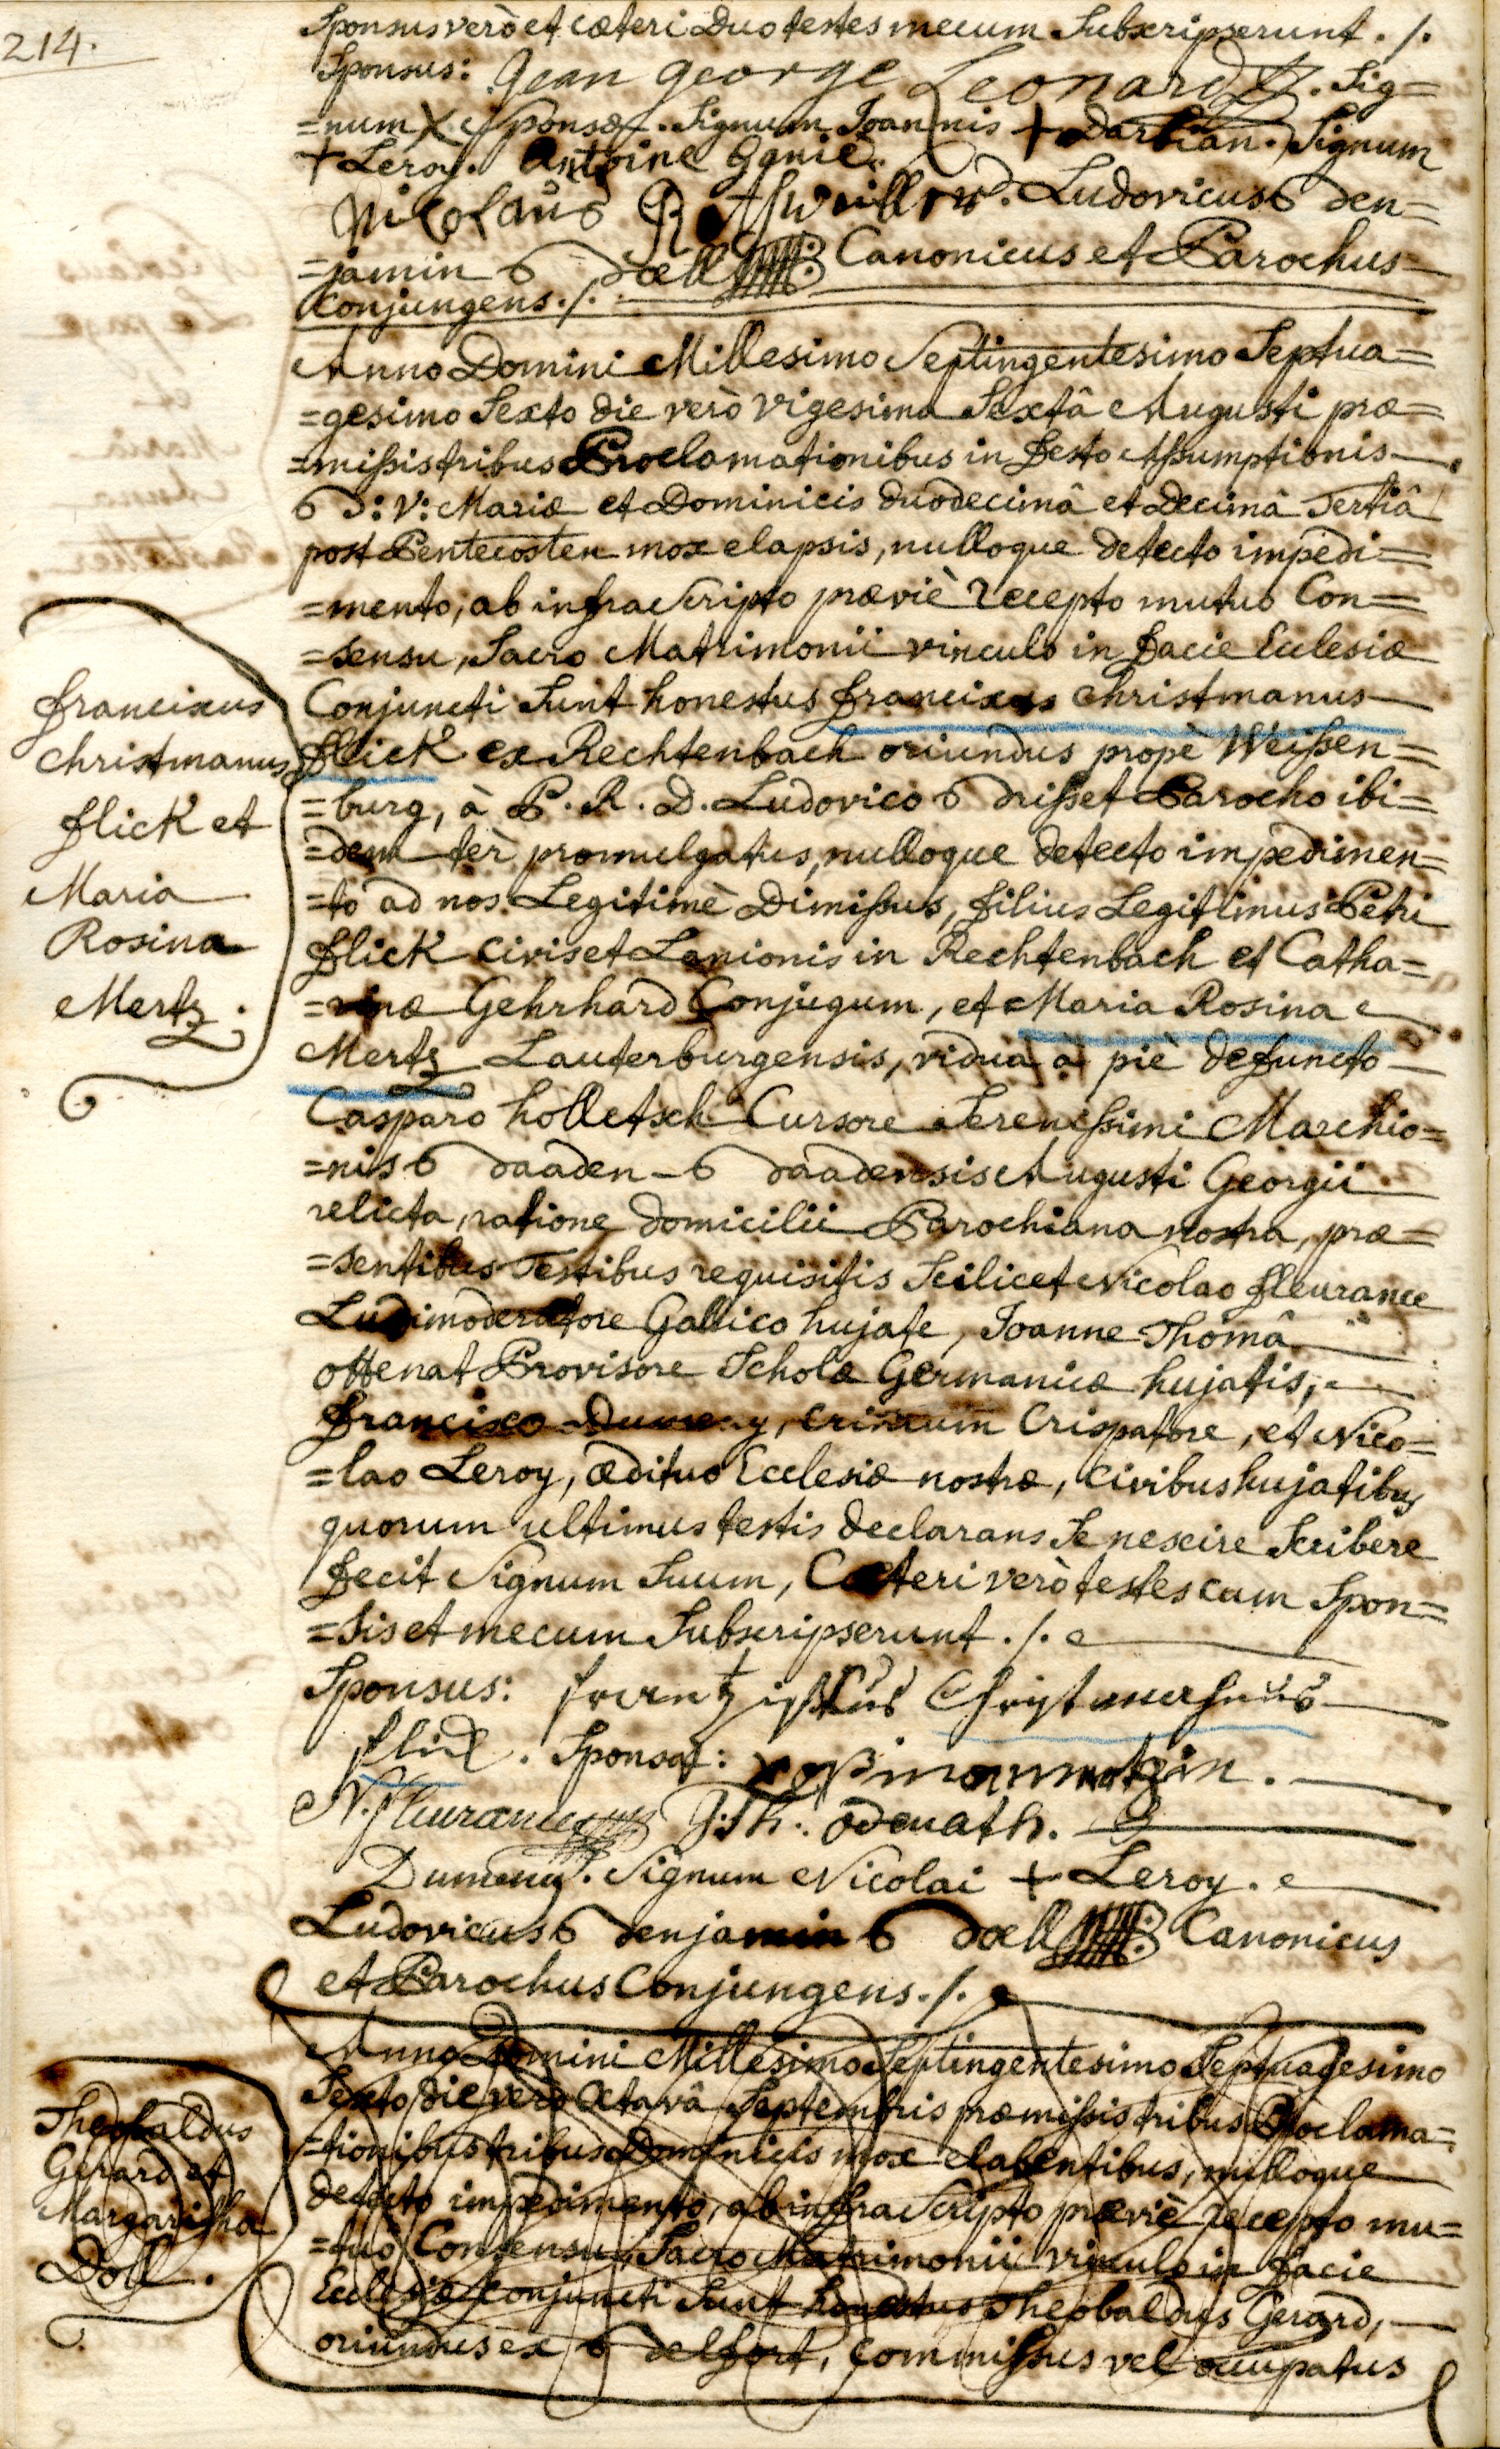 214.
Sponsus verò et cæteri Duo testes mecum Subscripserunt ./.
Sponsus: Jean george Leonard. Sig=
=num X Sponsæ. Signum Joannis + Barbian. Signum
+ Leroy. Antoine
Nicolaus. Ludovicus Ben=
=jamin Boell Canonicus et Parochus
conjungens ./.
Anno Domini Millesimo Septingentesimo Septua=
=gesimo Sexto die verò vigesima Sextâ Augusti præ=
=missis tribus Proclamationibus in festo Assumptionis
B: V: Mariæ et Dominicis duodecimâ et Decimâ Tertiâ
post Pentecosten mox elapsis, nulloque detecto impedi=
=mento, ab infra Scripto præviè recepto mutuo Con=
=sensu, Sacro Matrimonii vinculo in facie Ecclesiæ
Conjuncti Sunt honestus franciscus christmanus
flick ex Rechtenbach oriundus propè Weissen=
=burg, à P. R. D. Ludovico Brisset Parocho ibi=
=dem tèr promulgatus, nulloque detecto impedimen=
=to ad nos Legitimè Dimissus, filius Legitimus Petri
flick civis et Lanionis in Rechtenbach et Catha=
=rinæ Gehrhard Conjugum, et Maria Rosina
Mertz Lauterburgensis, vidua à piè defuncto
Casparo holletsch Cursore Serenissimi Marchio=
=nis Baaden-Baadensis Augusti Georgii
relicta, ratione domicilii Parochiana nostra, præ=
=sentibus Testibus requisitis Scilicet Nicolao fleurance
Ludimoderatore Gallico hujate, Joanne Thomâ
ottenat Provisore Scholæ Germanicæ hujatis,
francisco Dumeny, crinium Crispatore, et Nico=
=lao Leroy, ædituo Ecclesiæ nostræ, civibus hujatibus
quorum ultimus testis declarans Se nescire Scribere
fecit Signum Suum, Cæteri verò testes cum Spon=
=sis et mecum Subscripserunt ./.
Sponsus: frantz Christmahnus
flick. Sponsa: rossina mertzin.
N. fleurance J: Th: odenath.
Dumeny. Signum Nicolai + Leroy.
Ludovicus Benjamin Boell Canonicus
et Parochus Conjungens ./.
franciscus
christmanus
flick et
Maria
Rosina
Mertz.
Anno Domini Millesimo Septingentesimo Septuagesimo
Sexto die verò Octavâ Septembris præmissis tribus Proclama=
=tionibus tribus Dominicis mox elabentibus, nulloque
detecto impedimento, ab infra Scripto præviè recepto mu=
=tuo Consensu, Sacro Matrimonii vinculo in facie
Ecclesiæ conjuncti Sunt honestus Theobaldus Gerard,
oriundus ex Belfort, commissus vel occupatus
Theobaldus
Gerard et
Margaritha
Doll.